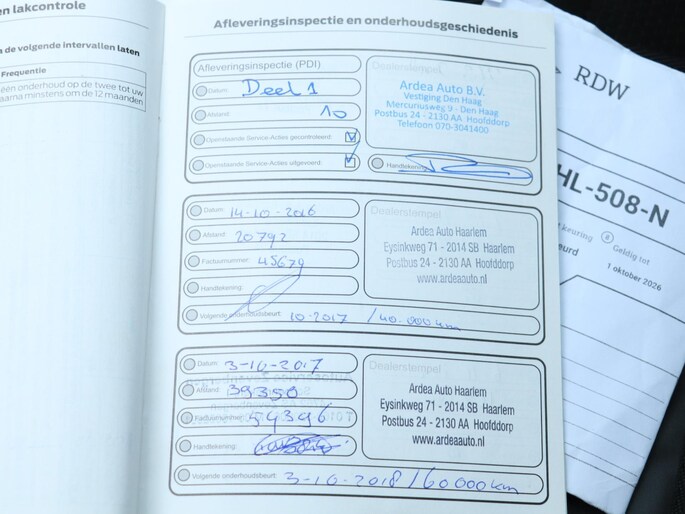 en lakcontrole
n de volgende intervallen laten
Frequentie
één onderhoud op de twee tot uw
aarna minstens om de 12 maanden
Afleveringsinspectie en onderhoudsgeschiedenis
Afleveringsinspectie (PDI)
Datum: Deel 1
Afstand: 10
Openstaande Service-Acties gecontroleerd
Openstaande Service-Acties uitgevoerd
Dealerstempel
Ardea Auto B.V.
Vestiging Den Haag
Mercuriusweg 9 - Den Haag
Postbus 24 - 2130 AA Hoofddorp
Telefoon 070-3041400
Handtekening
Datum: 14-10-2016
Afstand: 20792
Factuurnummer: 45679
Handtekening:
Dealerstempel
Ardea Auto Haarlem
Eysinkweg 71 - 2014 SB Haarlem
Postbus 24 - 2130 AA Hoofddorp
www.ardeaauto.nl
Volgende onderhoudsbeurt: 10-2017 / 40.000 km
Datum: 3-10-2017
Afstand: 39350
Factuurnummer: 54396
Handtekening:
Dealerstempel
Ardea Auto Haarlem
Eysinkweg 71 - 2014 SB Haarlem
Postbus 24 - 2130 AA Hoofddorp
www.ardeaauto.nl
Volgende onderhoudsbeurt: 3-10-2018 / 60000 km
RDW
HL-508-N
keuring
Geldig tot
eurd
1 oktober 2026